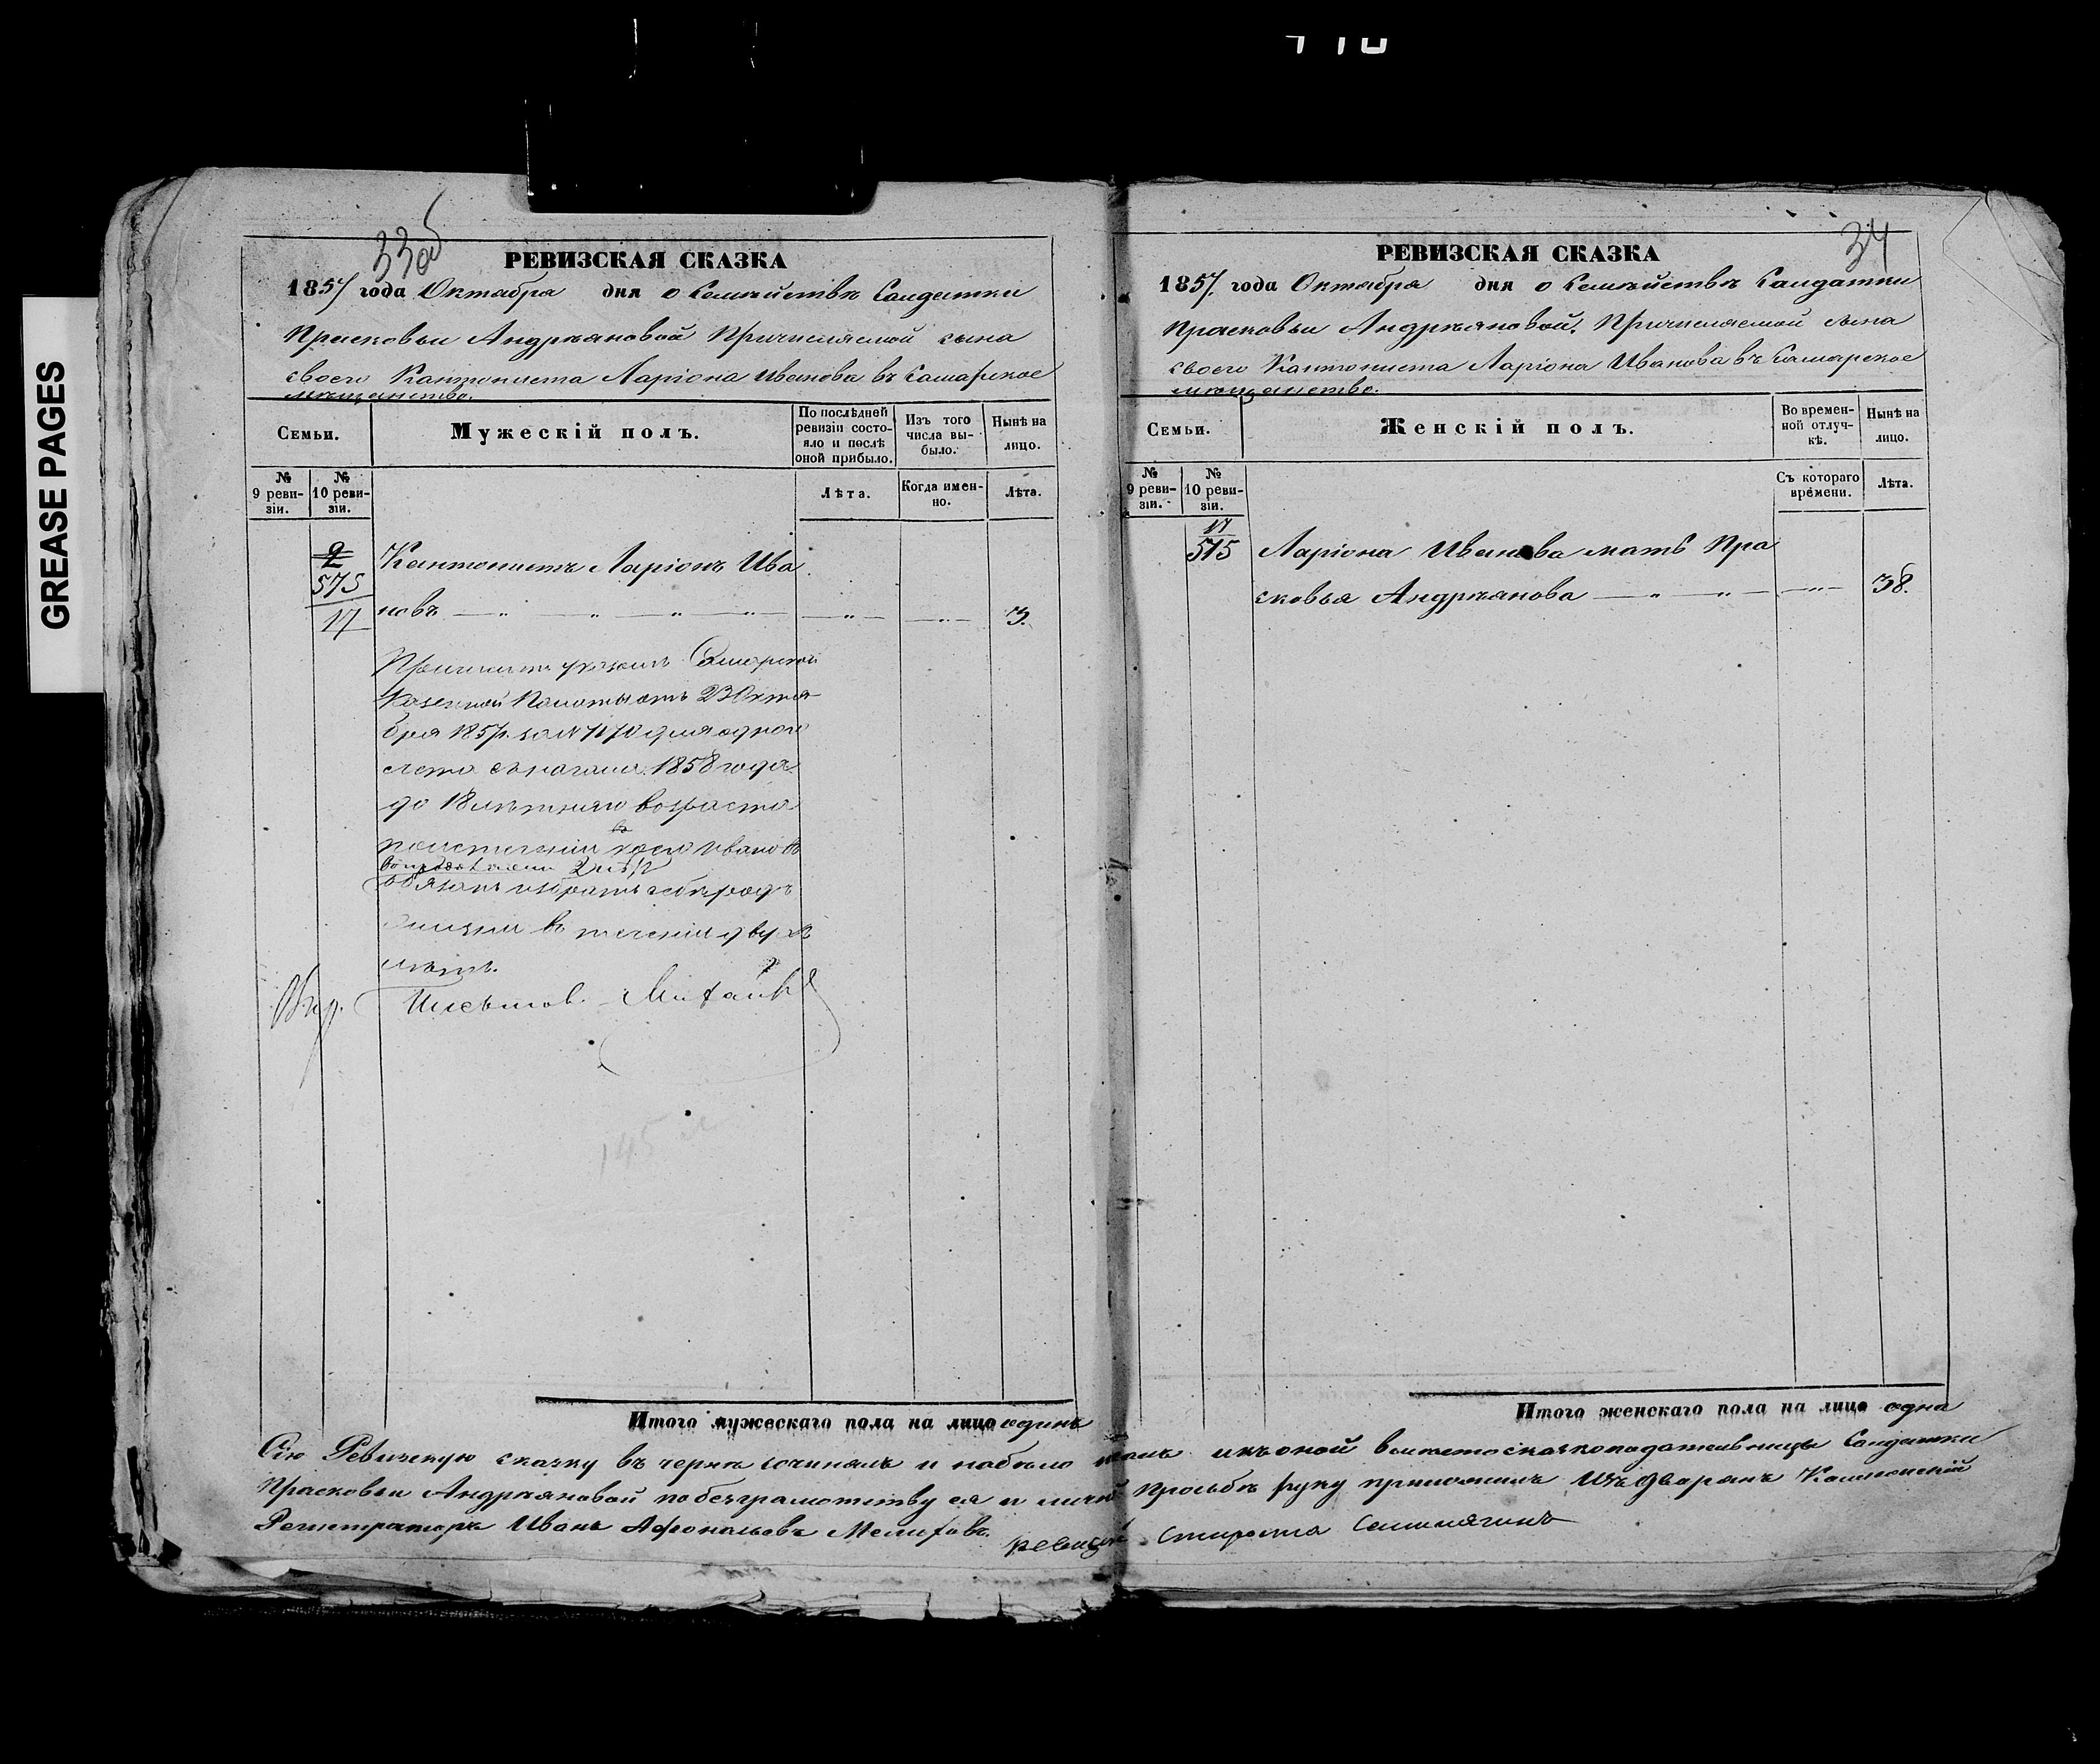 GREASE PAGES
33об
РЕВИЗСКАЯ СКАЗКА
1857 года Октября дня о Семействѣ Салдатки
Прасковьи Андреяновой Причисляемой сына
своего Кантониста Ларіона Иванова въ Самарское
мѣщанство.
Семьи.
Мужескій полъ.
По послѣдней ревизіи состояло и послѣ оной прибыло.
Изъ того числа выбыло.
Нынѣ на лицо.
№ 9 ревизіи.
№ 10 ревизіи.
Лѣта.
Когда именно.
Лѣта.
575
17
Кантонистъ Ларіонъ Ива
новъ 3.
Причисленъ указомъ Самарской
Казенной Палаты отъ 23 Октя
бря 1857 г. за № 7170 для одного
счета съ начала 1858 года
до 18 лѣтняго возраста
по истеченіи коего Ивановъ
обязанъ избрать себѣ родъ
жизни въ теченіи двухъ
лѣтъ.
145
Итого мужескаго пола на лицо одинъ
34
РЕВИЗСКАЯ СКАЗКА
1857. года Октября дня о Семействѣ Салдатки
Прасковьи Андреяновой. Причисляемой сына
своего Кантониста Ларіона Иванова въ Самарское
мѣщанство.
Семьи.
Женскій полъ.
Во временной отлучкѣ.
Нынѣ на лицо.
№ 9 ревизіи.
№ 10 ревизіи.
Съ котораго времени.
Лѣта.
17
575
Ларіона Иванова мать Пра
сковья Андреянова 38.
Итого женскаго пола на лицо одна
Сію Ревизскую сказку въ чернѣ сочинялъ и набѣло вмѣсто сказкоподательницы Салдатки
Прасковьи Андреяновой по безграмотству ея и личной просьбѣ руку приложилъ Изъ Дворянъ Коллежскій
Регистраторъ Иванъ Афонасьевъ
Староста